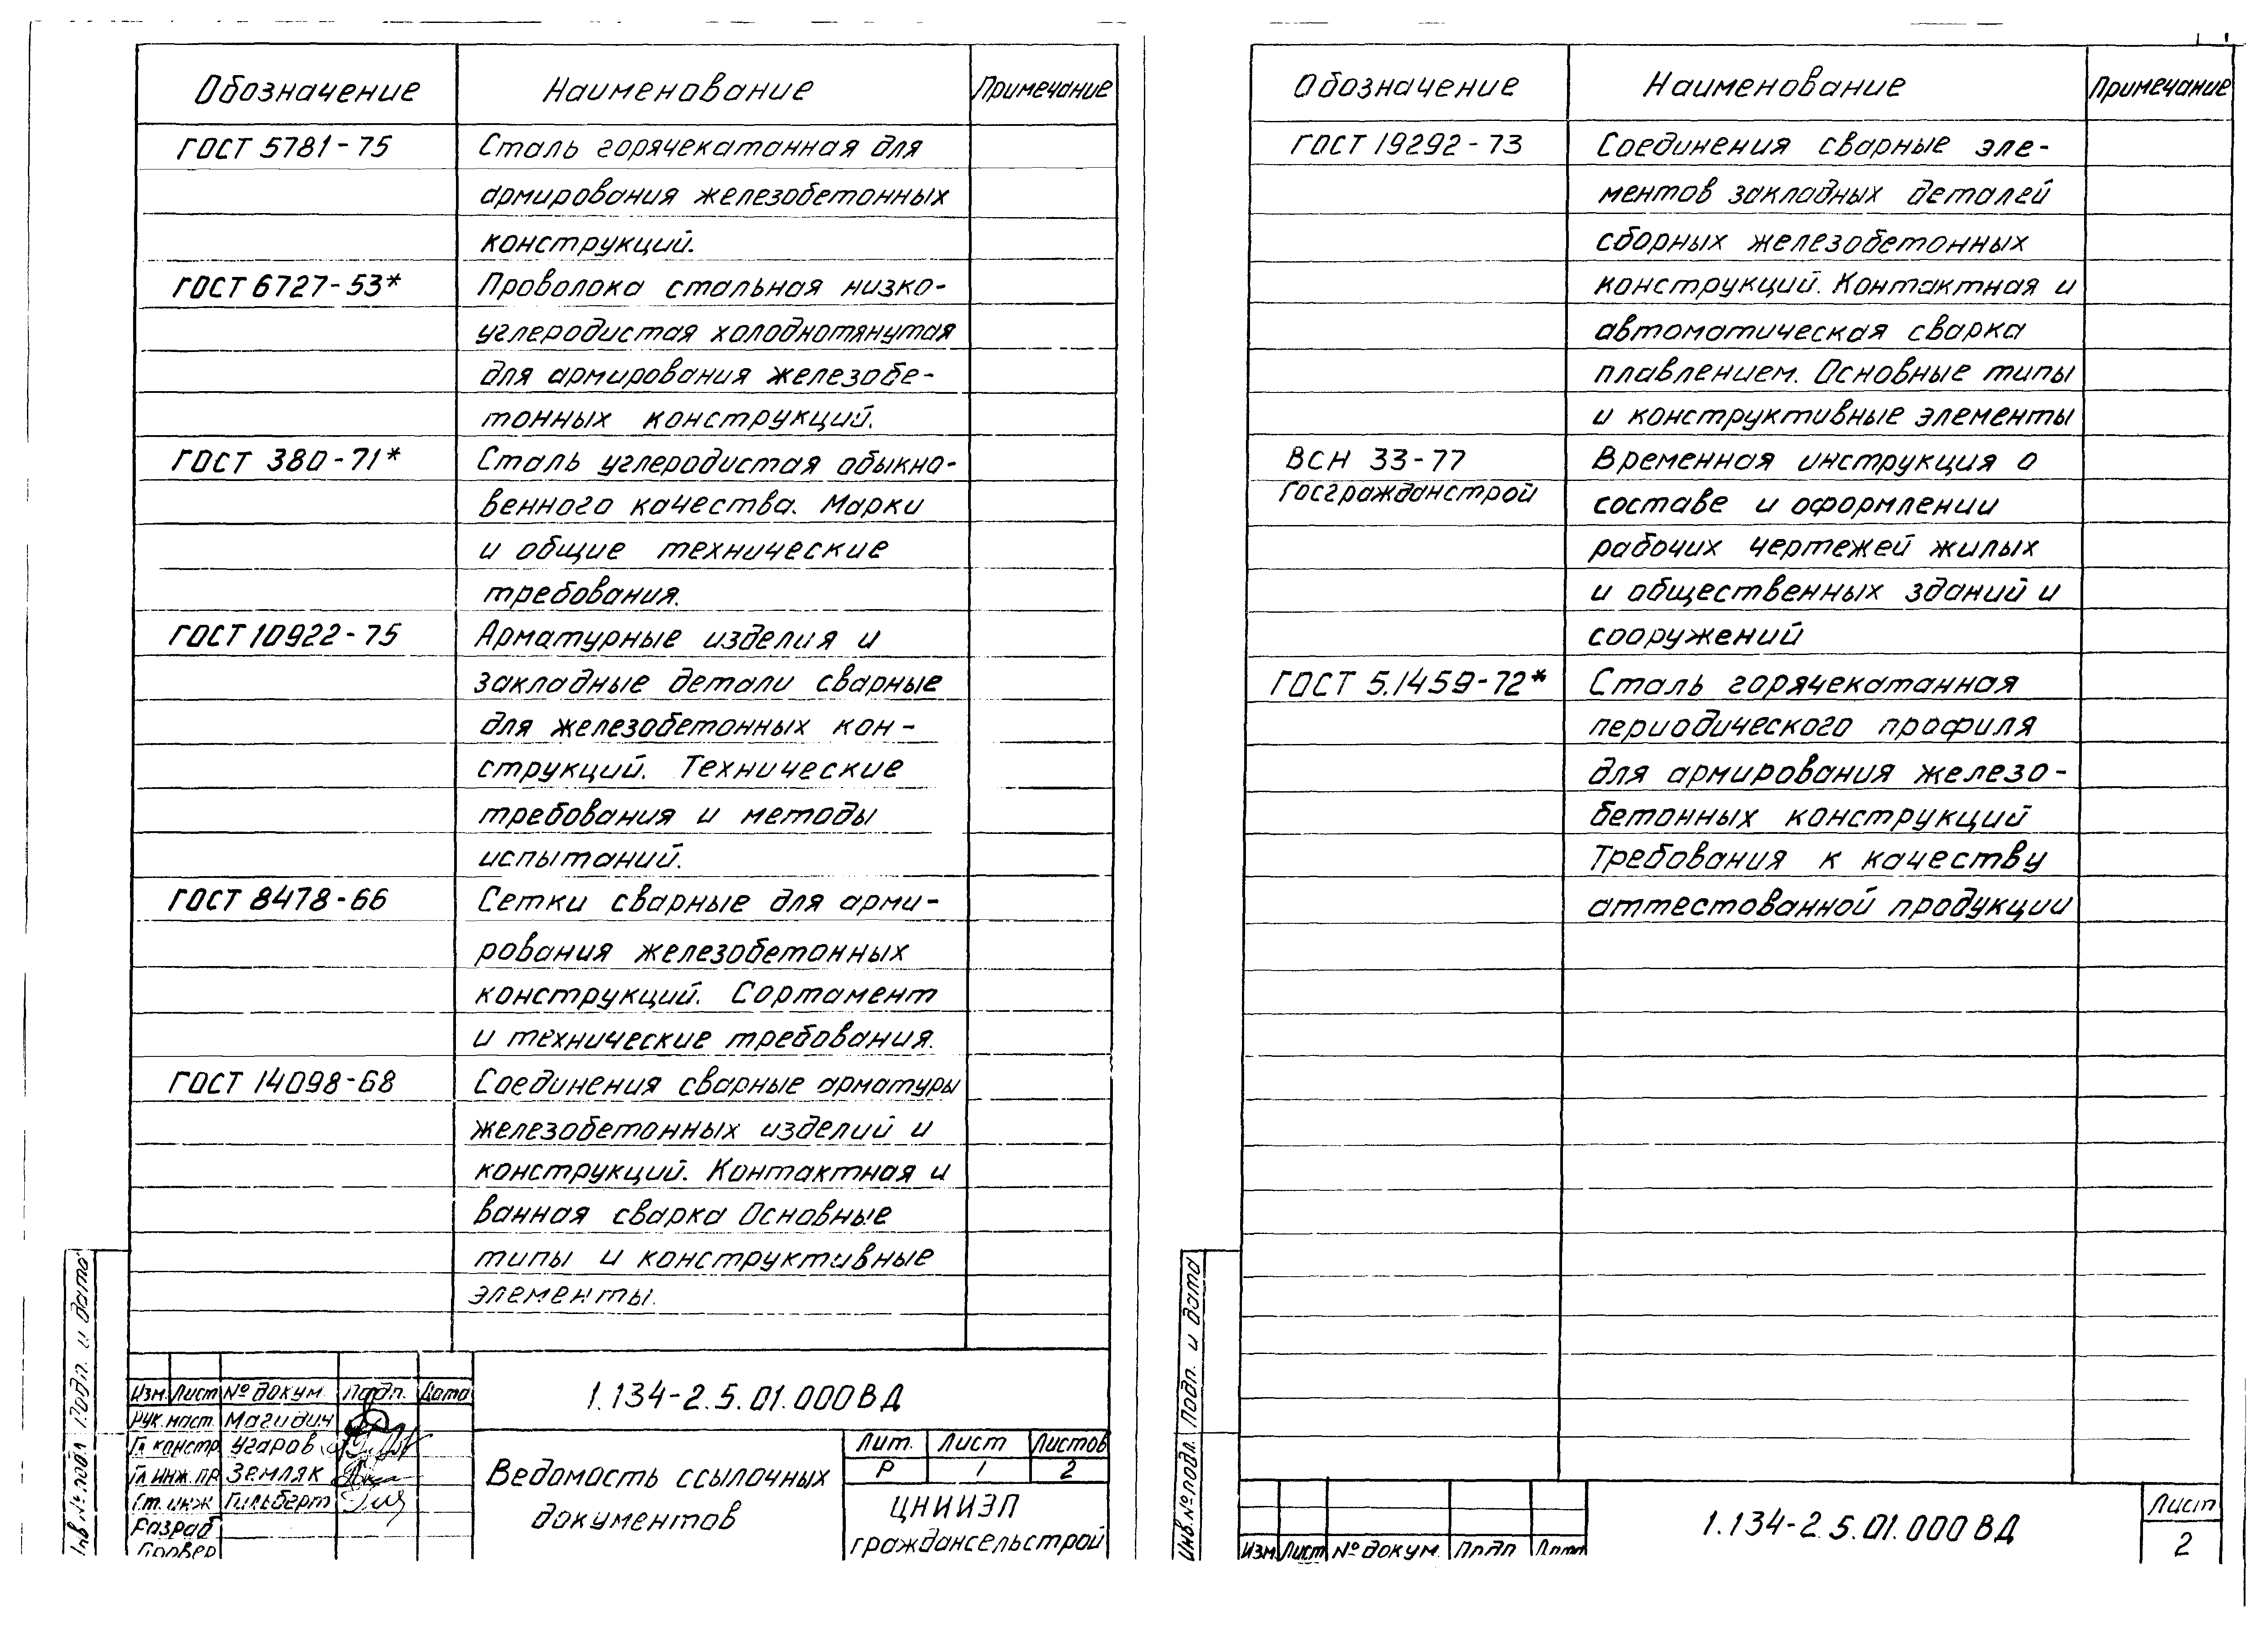 Обозначение Наименование Примечание
ГОСТ 5781-75 Сталь горячекатанная для
армирования железобетонных
конструкций.
ГОСТ 6727-53* Проволока стальная низко-
углеродистая холоднотянутая
для армирования железобе-
тонных конструкций.
ГОСТ 380-71* Сталь углеродистая обыкно-
венного качества. Марки
и общие технические
требования.
ГОСТ 10922-75 Арматурные изделия и
закладные детали сварные
для железобетонных кон-
струкций. Технические
требования и методы
испытаний.
ГОСТ 8478-66 Сетки сварные для арми-
рования железобетонных
конструкций. Сортамент
и технические требования.
ГОСТ 14098-68 Соединения сварные арматуры
железобетонных изделий и
конструкций. Контактная и
ванная сварка Основные
типы и конструктивные
элементы.
Инв.№подл Подп. и дата
Изм. Лист № докум. Подп. Дата
Рук. маст. Магидич
Гл констр. Угаров
Гл инж. пр Земляк
Ст. инж Гильберт
Разраб
Провер
1.134-2.5.01.000ВД
Ведомость ссылочных
документов
Лит. Лист Листов
Р 1 2
ЦНИИЭП
граждансельстрой
Обозначение Наименование Примечание
ГОСТ 19292-73 Соединения сварные эле-
ментов закладных деталей
сборных железобетонных
конструкций. Контактная и
автоматическая сварка
плавлением. Основные типы
и конструктивные элементы
ВСН 33-77 Временная инструкция о
Госгражданстрой составе и оформлении
рабочих чертежей жилых
и общественных зданий и
сооружений
ГОСТ 5.1459-72* Сталь горячекатанная
периодического профиля
для армирования железо-
бетонных конструкций
Требования к качеству
аттестованной продукции
Инв.№подл. Подп. и дата
Изм. Лист № докум. Подп
1.134-2.5.01.000ВД
Лист
2